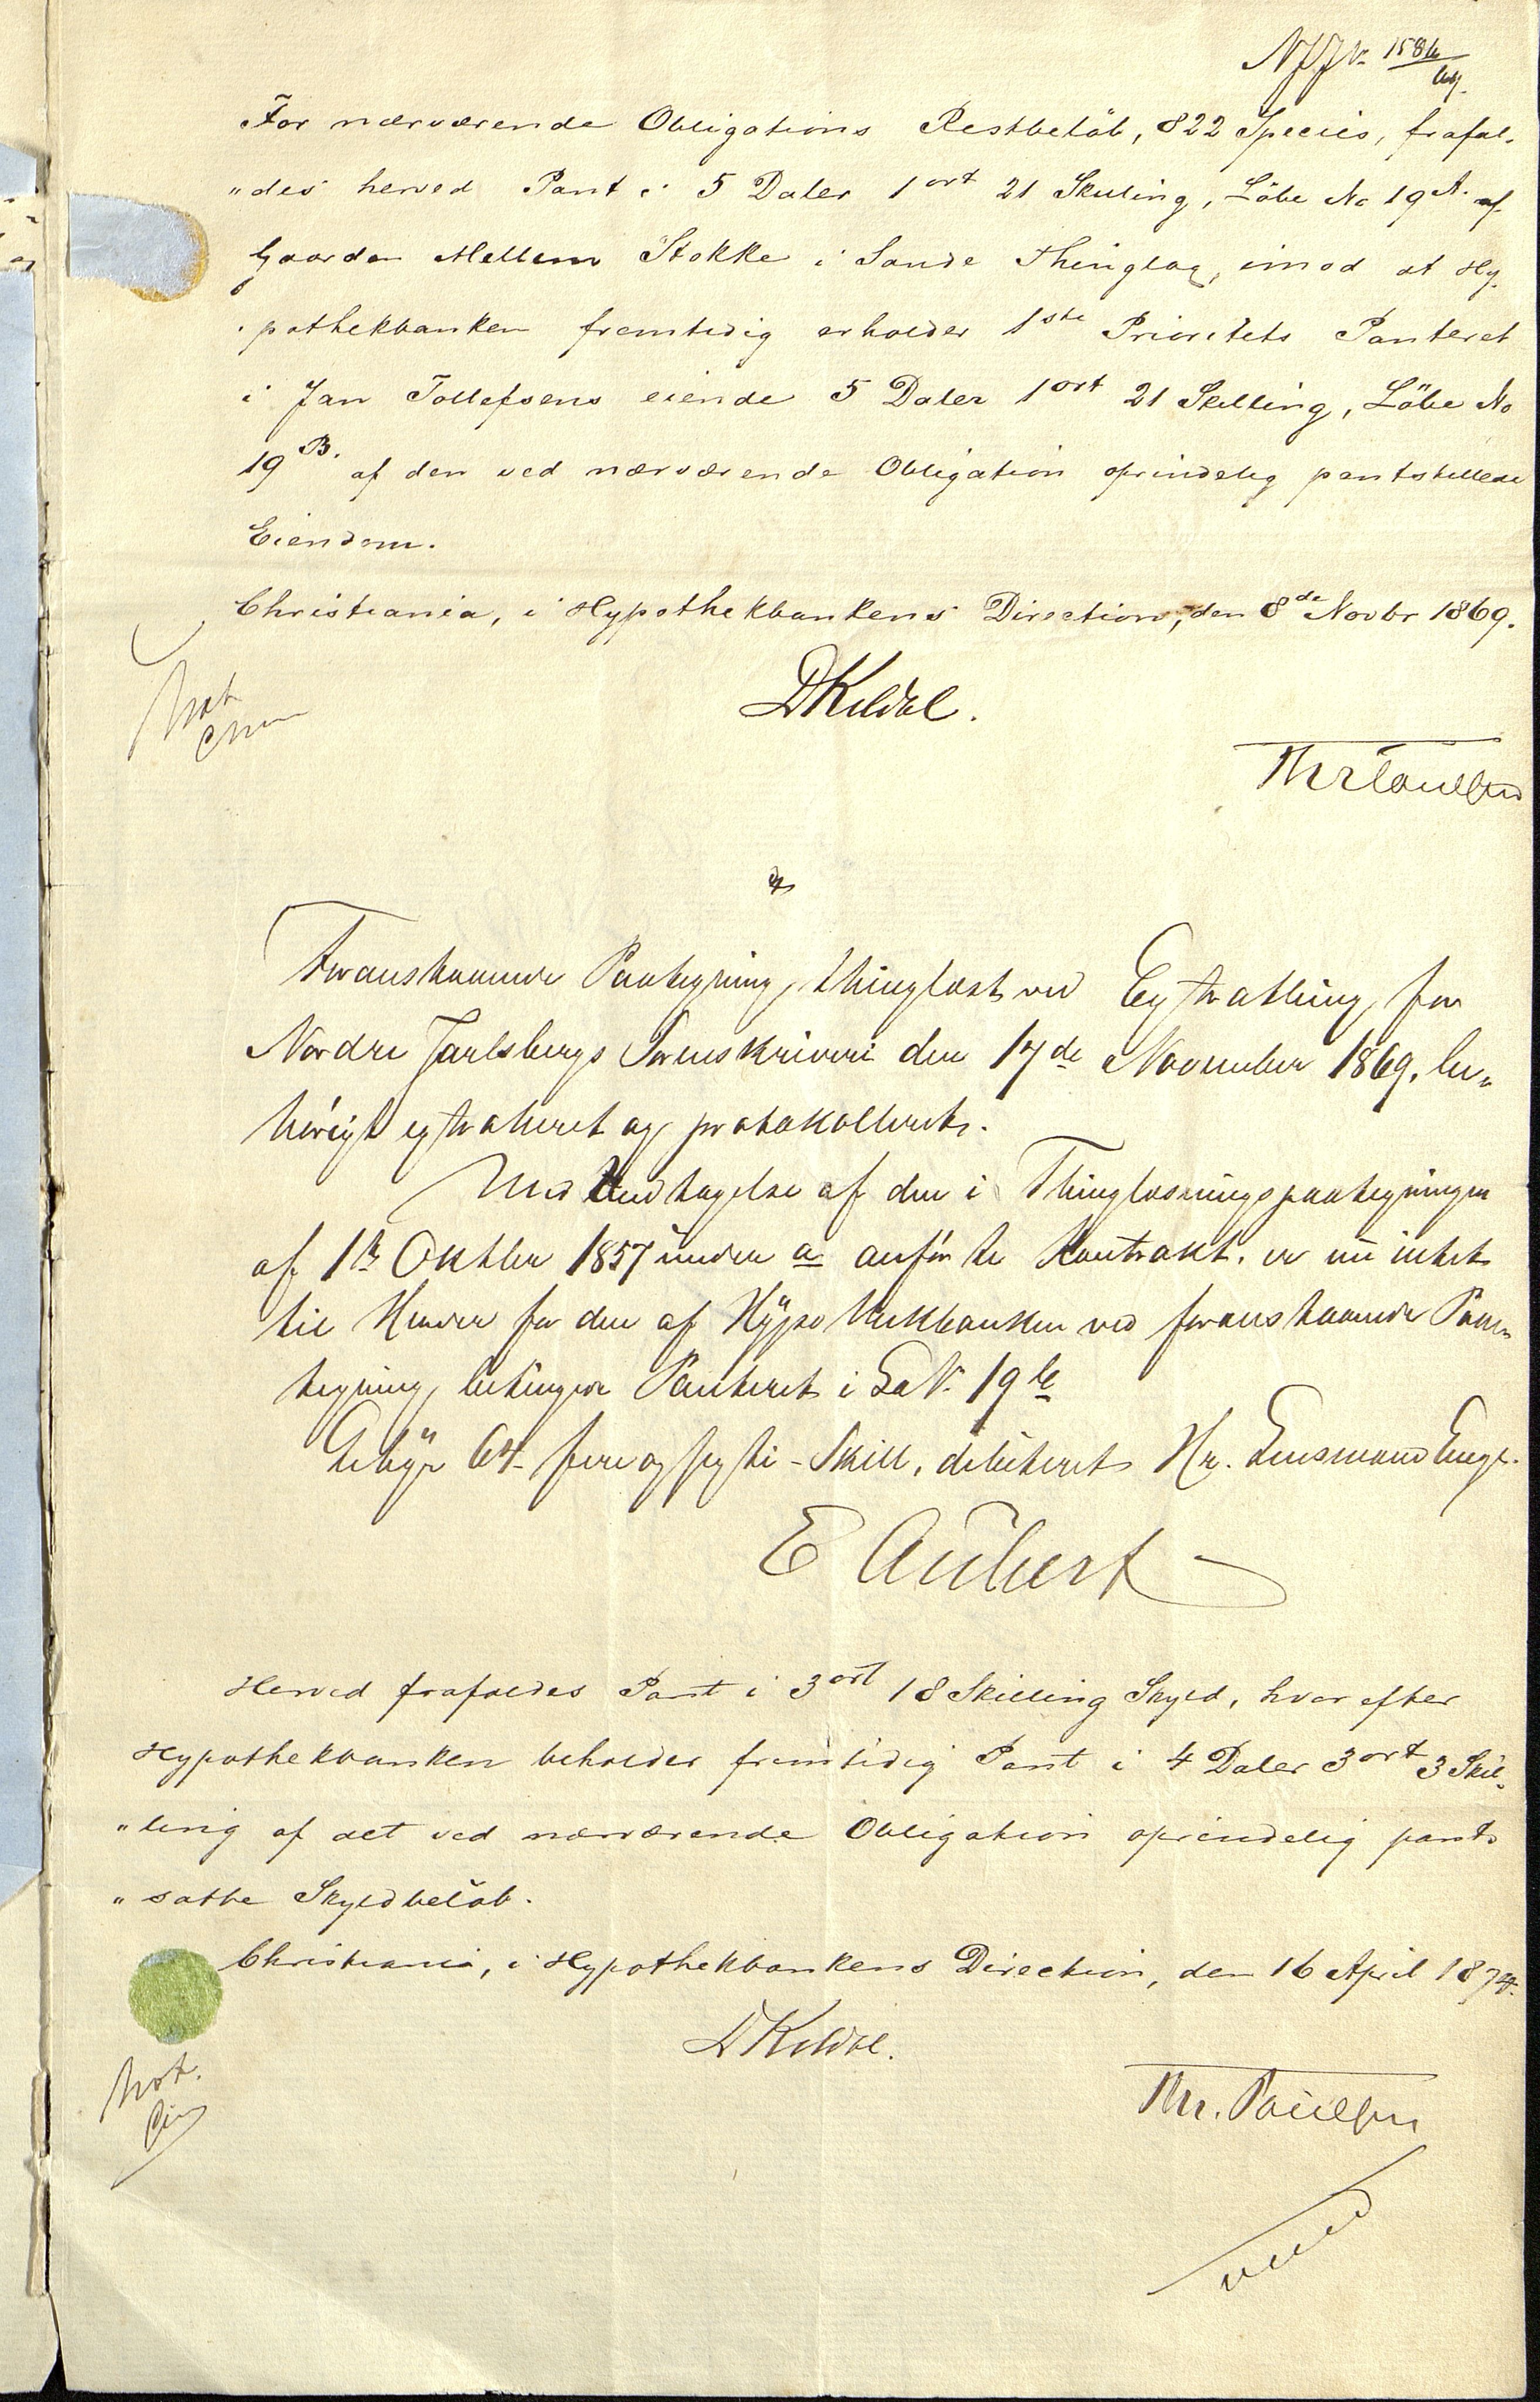 NJJV. 1586/69.
For nærværende Obligations Restbeløb, 822 Species, frafal-
"des herved Pant i 5 Daler 1 ort 21 Skilling, Löbe No 19 A. af
Gaarden Mellem Stokke i Sande Thinglag, imod at Hy-
"pothekbanken fremtidig erholder 1ste Prioritets Panteret
i Jan Tollefsens eiende 5 Daler 1 ort 21 Skilling, Löbe No
19 B. af den ved nærværende Obligation oprindelig pantstillede
Eiendom.
Christiania, i Hypothekbankens Direction, den 8de Novbr 1869.
DKildal.
Not
Thr Paulsen
Foranstaaende Paategning, thinglæst ved Extrathing for
Nordre Jarlsbergs Sorenskriveri den 17de November 1869, be-
hörigt extraheret og protokolleret.
Med Undtagelse af den i Thinglæsningspaategningen
af 1ste Oktbr 1857 under a anförte Kontrakt, er nu intet
til Hinder for den af Hypothekbanken ved foranstaaende Paa-
tegning betingede Panteret i Lö N. 19 b
Gebyr 64 - fire og sexti - Skill, debiteret Hr. Lensmand Enge.
E Aubert
Herved frafaldes Pant i 3 ort 18 Skilling Skyld, hvorefter
Hypothekbanken beholder fremtidig Pant i 4 Daler 3 ort 3 Skil-
"ling af det ved nærværende Obligation oprindelig pant-
"satte Skyldbelöb.
Christiania, i Hypothekbankens Direction, den 16 April 1874.
DKildal.
Not.
Thr. Paulsen